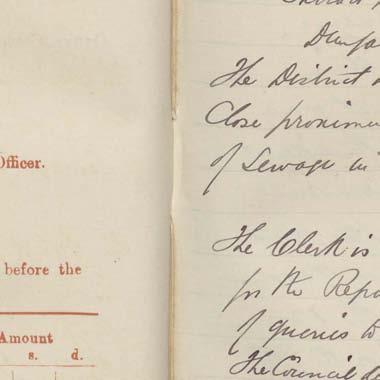 Officer.
before the
Amount
s. d.
The District
Close proxim
of Sewage in
The Clerk is
for the Repo
of queries to
The Council